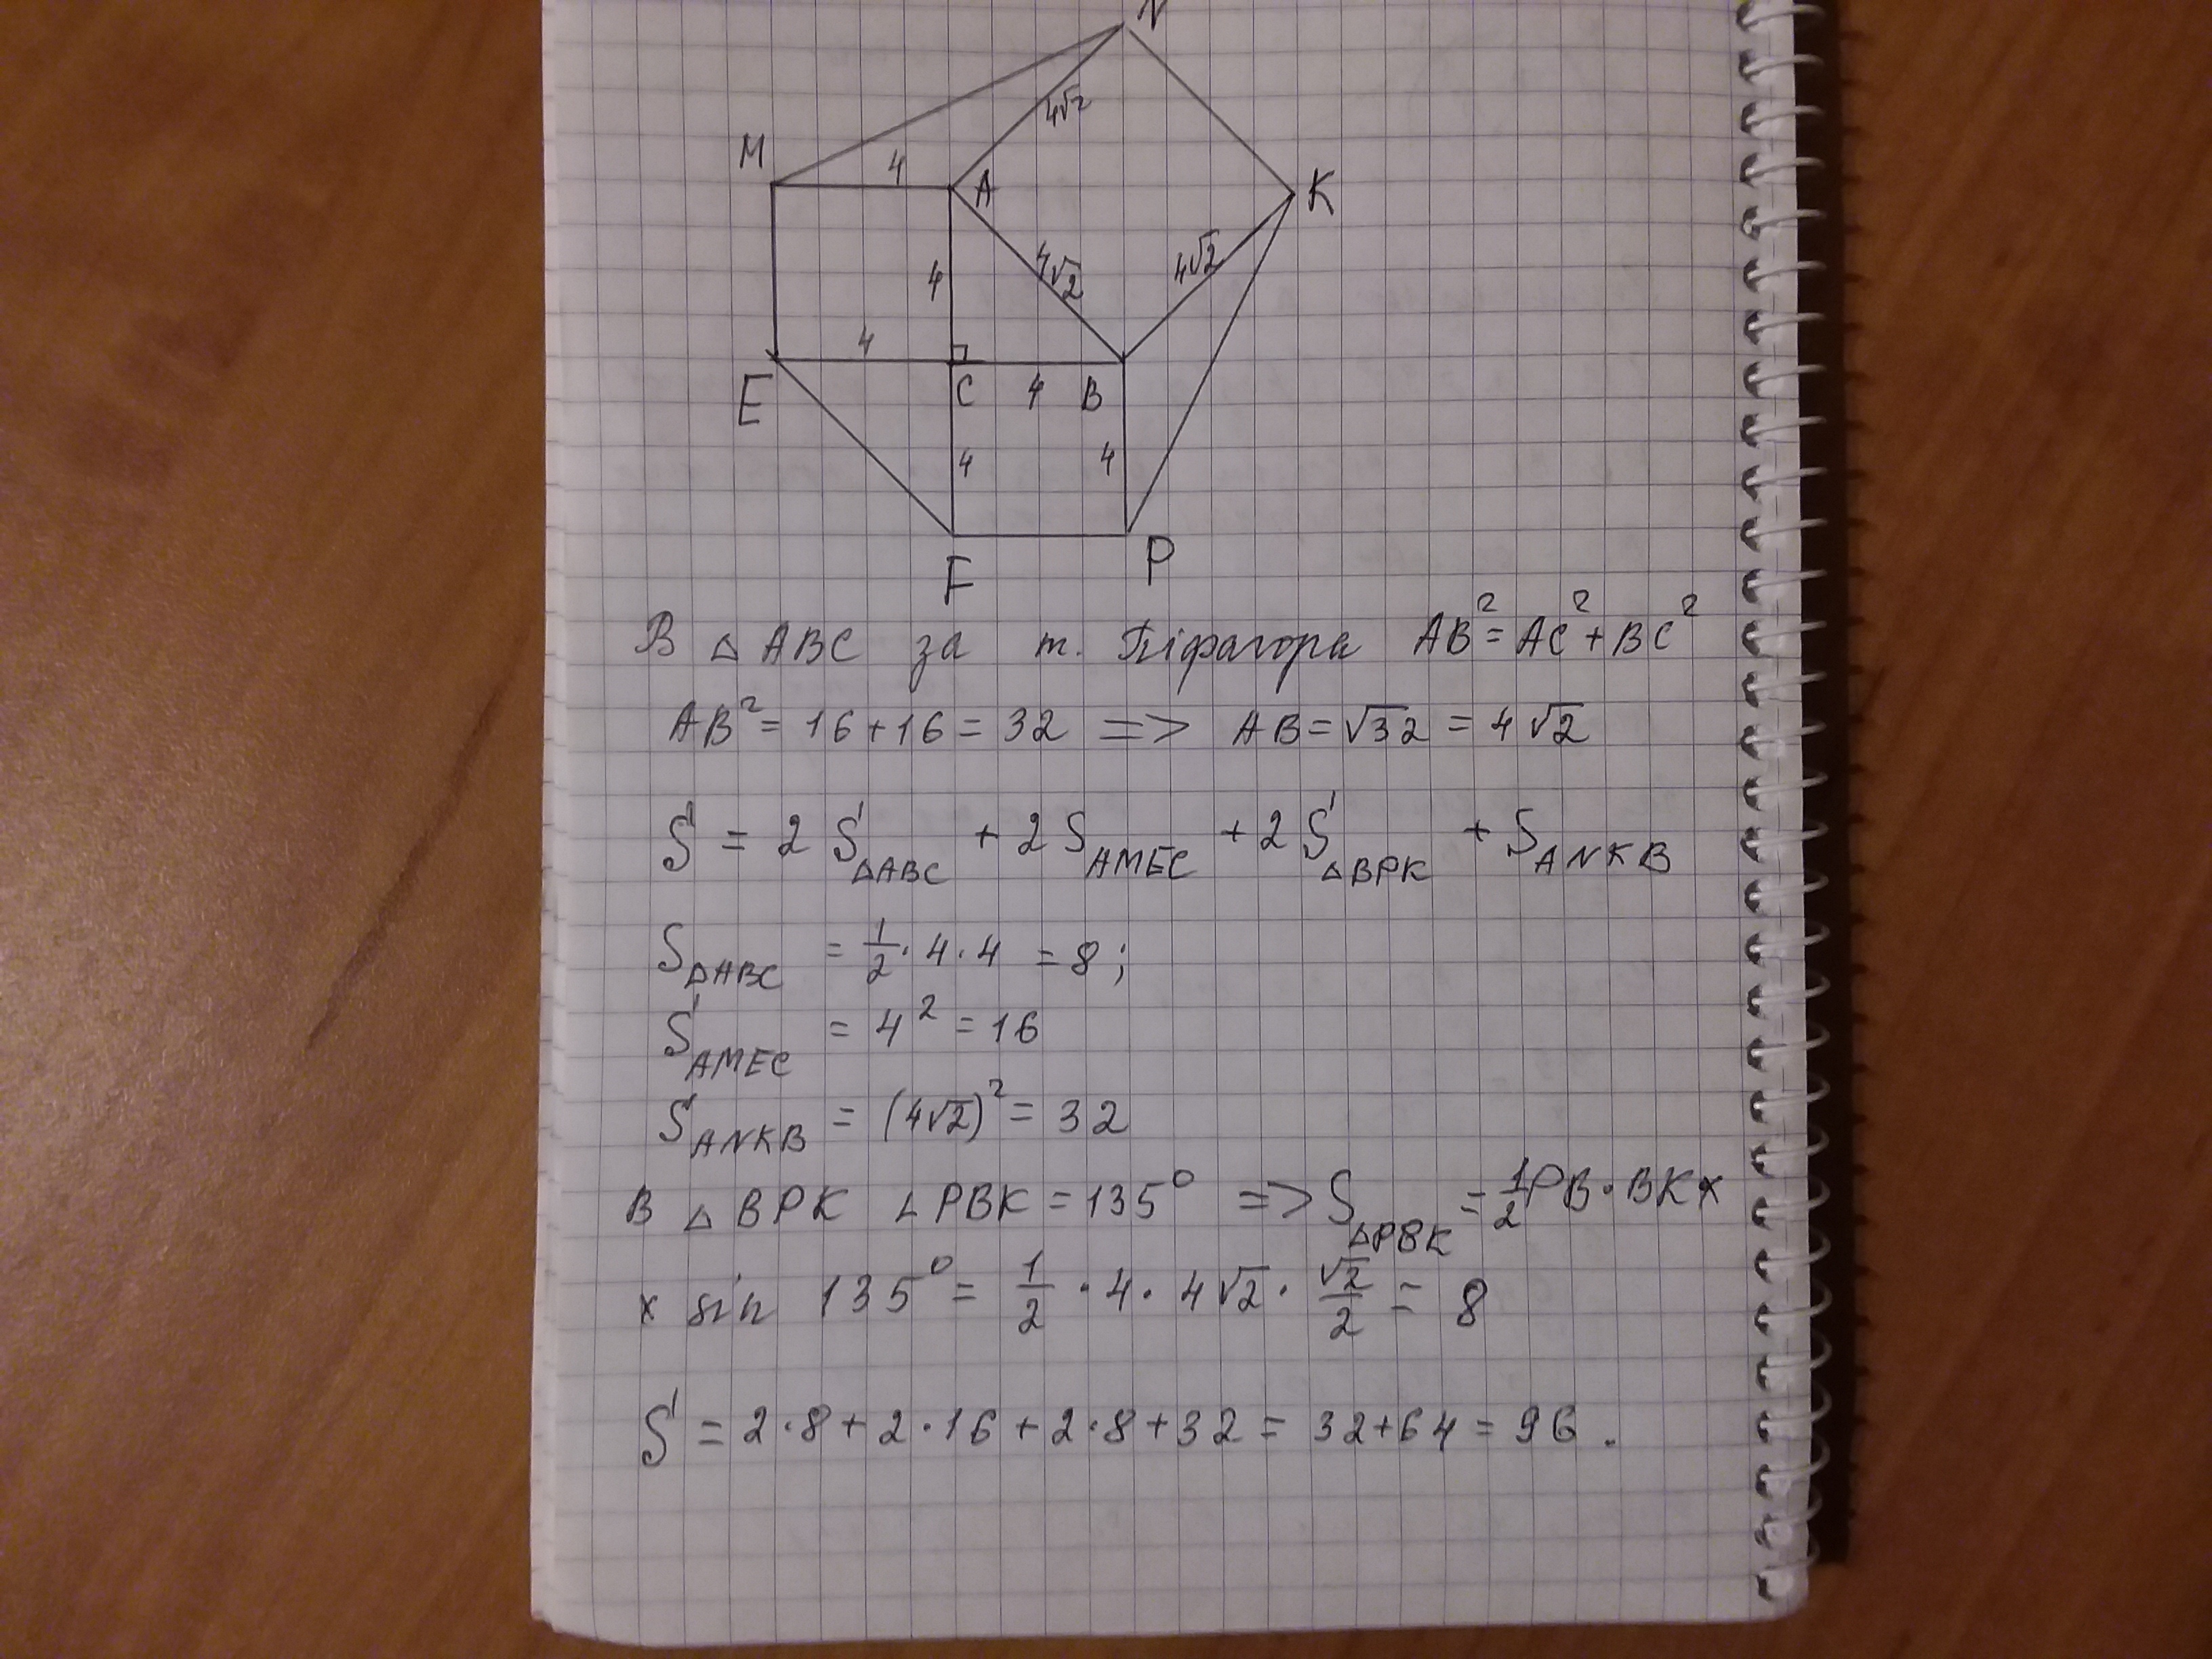 N
4√2
M 4 A K
4 4√2 4√2
4
E C 4 B
4 4
F P
В △ABC за т. Піфагора AB² = AC² + BC²
AB² = 16 + 16 = 32 => AB = √32 = 4√2
S = 2 S△ABC + 2 SAMEC + 2 S△BPK + SANKB
S△ABC = 1/2 · 4 · 4 = 8;
SAMEC = 4² = 16
SANKB = (4√2)² = 32
В △BPK ∠PBK = 135° => S△PBK = 1/2 PB · BK ×
× sin 135° = 1/2 · 4 · 4√2 · √2/2 = 8
S = 2·8 + 2·16 + 2·8 + 32 = 32 + 64 = 96.